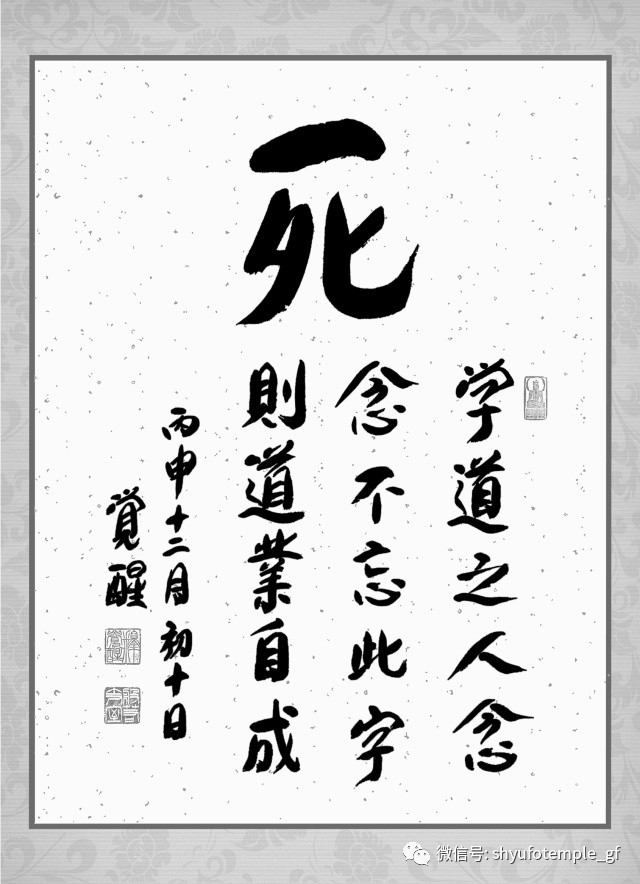 死
学道之人念
念不忘此字
則道業自成
丙申十二月初十日
覚醒
微信号: shyufotemple_gf